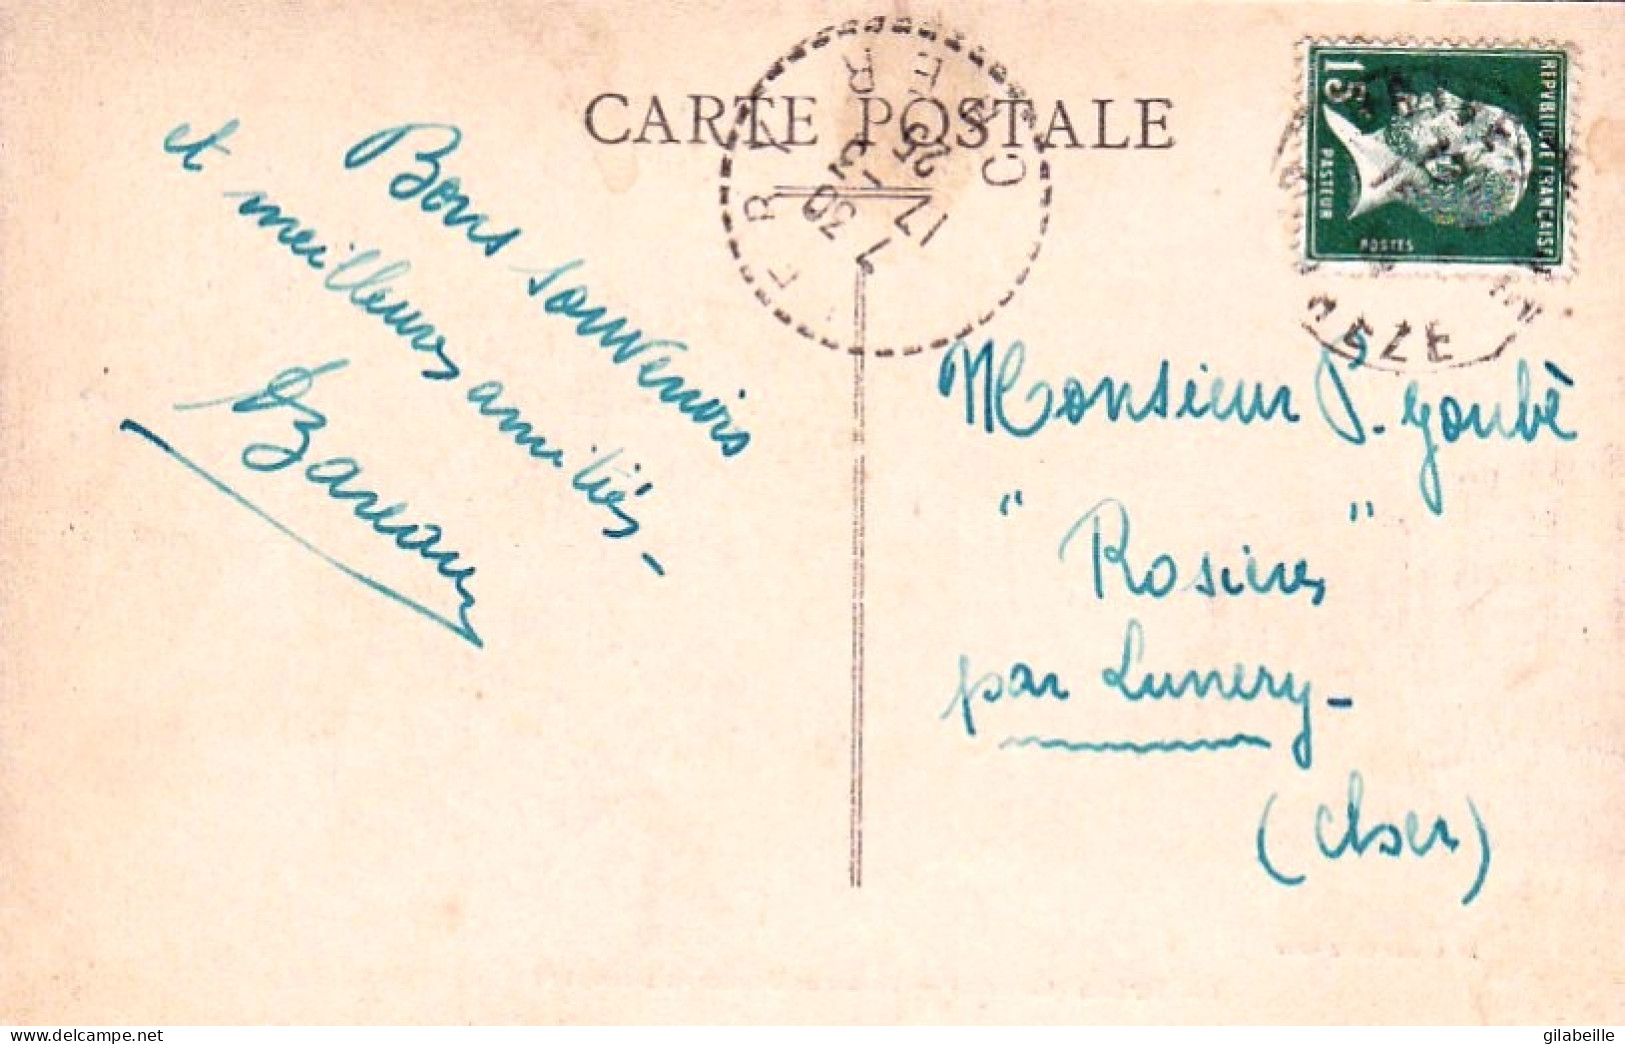 CARTE POSTALE
Bons souvenirs
et meilleures amitiés -
Bareau
7 30
17 - 3
25
CHER
15
REPVBLIQVE FRANÇAISE
PASTEUR
POSTES
Monsieur P. Goubé
" Rosieres "
par Lunery -
(Cher)
delcampe.net
gilabeille